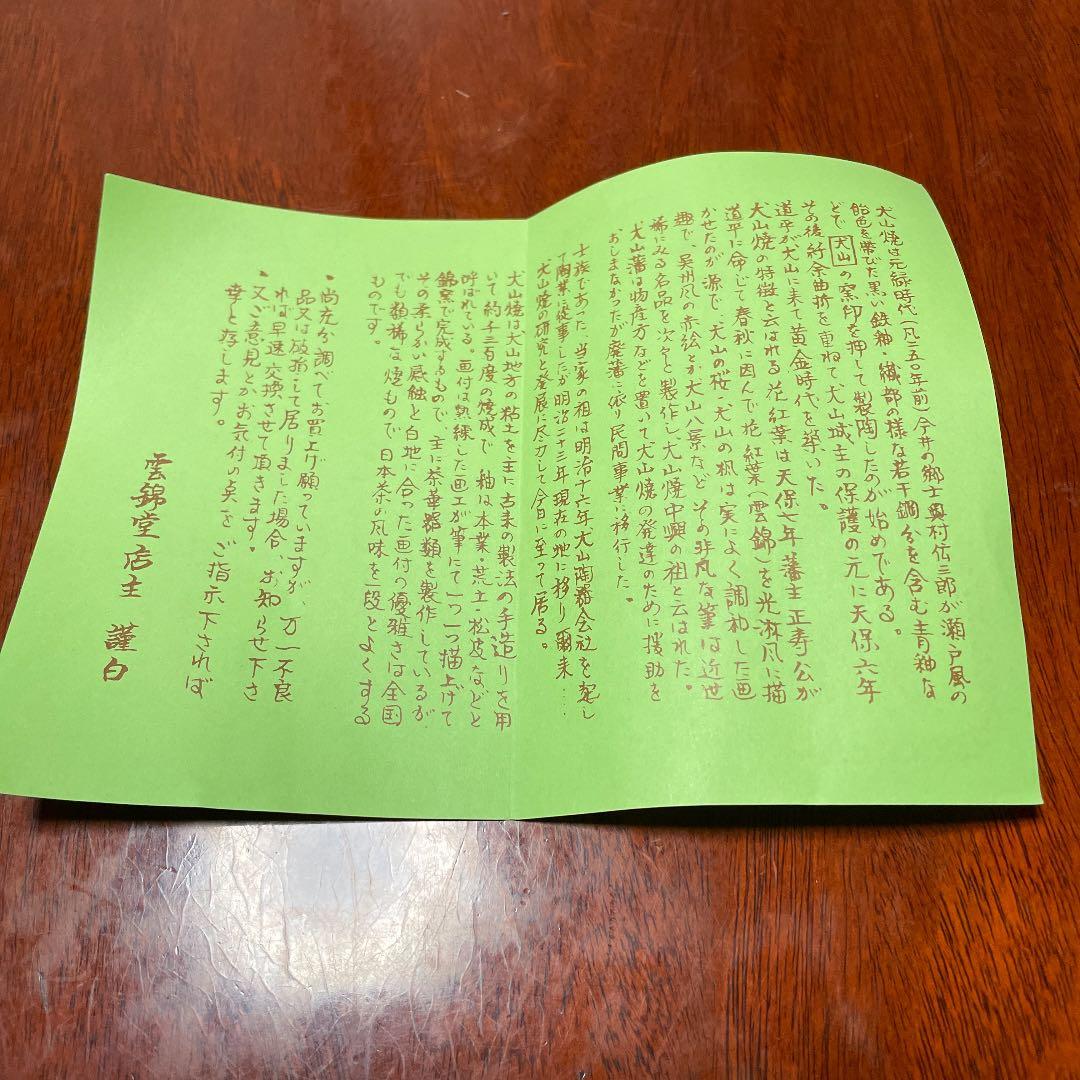 犬山焼は元禄時代(凡三〇〇年前)今井の郷士奥村伝三郎が瀬戸風の
飴色を帯びた黒い鉄釉・織部の様な若干銅分を含む青釉な
どで犬山の窯印を押して製陶したのが始めである。
その後紆余曲折を重ねて犬山城主の保護の元に天保六年
道平が犬山に来て黄金時代を築いた。
犬山焼の特徴と云はれる花紅葉は天保七年藩主正寿公が
道平に命じて春秋に因んで花、紅葉(雲錦)を光淋風に描
かせたのが源で、犬山の桜・犬山の楓は実によく調和した画
趣で、呉州風の赤絵とか犬山八景など、その非凡な筆は近世
稀にみる名品を次々と製作し、犬山焼中興の祖と云はれた。
犬山藩は物産方などを置いて犬山焼の発達のために援助を
おしまなかったが廃藩に依り民間事業に移行した。
士族であった当家の祖は明治十六年犬山陶器会社を起し
て陶業に従事したが明治二十三年現在の地に移り爾来……
犬山焼の研究と発展に尽力して今日に至って居る。
犬山焼は、犬山地方の粘土を主に古来の製法の手造りを用
いて約千三百度の焼成で 釉は本業・荒土・松皮などと
呼ばれている。画付は熟練した画工が筆にて一つ一つ描上げて
錦窯で完成するもので、主に茶華器類を製作しているが
その柔らかい感触と白地に合った画付の優雅さは全国
でも類稀な焼もので日本茶の風味を一段とよくする
ものです。
・尚充分調べてお買上げ願っていますが、万一不良
品又は破損して居りました場合、お知らせ下さ
れば早速交換させて頂きます。
・又ご意見とかお気付の点をご指示下されば
幸と存します。
雲錦堂店主 謹白